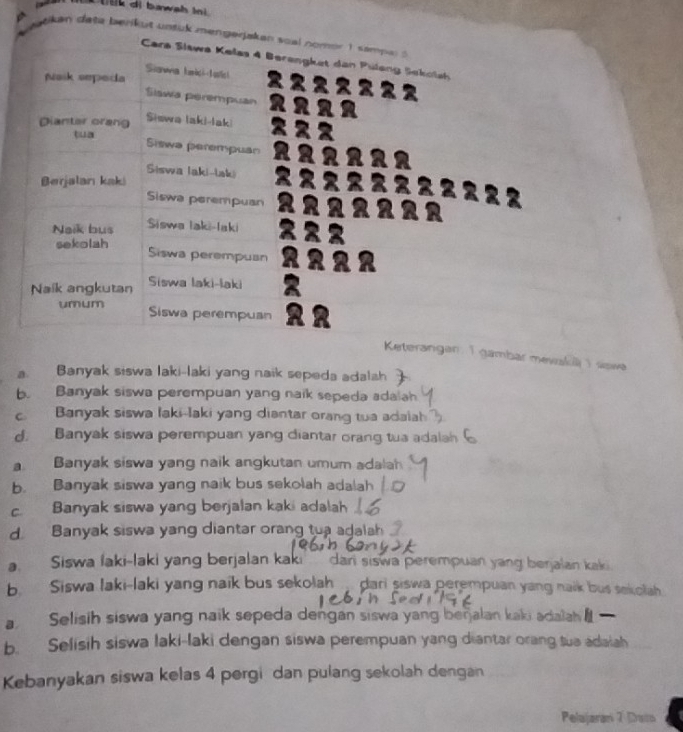 titik di bawah ini.
data berikut untuk mengerjakan soal nomor 1 sampai
Cara Siswa Kelas 4 Berangkat dan Pulang Sekolah
Naik sepeda
Siswa laki-laki
Siswa perempuan
Diantar orang tua
Siswa laki-laki
Siswa perempuan
Berjalan kaki
Siswa laki-laki
Siswa perempuan
Naik bus sekolah
Siswa laki-laki
Siswa perempuan
Naik angkutan umum
Siswa laki-laki
Siswa perempuan
Keterangan: 1 gambar mewakili 1 siswa
a. Banyak siswa laki-laki yang naik sepeda adalah
b. Banyak siswa perempuan yang naik sepeda adalah 4
c. Banyak siswa laki-laki yang diantar orang tua adalah 3
d. Banyak siswa perempuan yang diantar orang tua adalah 6
a. Banyak siswa yang naik angkutan umum adalah 4
b. Banyak siswa yang naik bus sekolah adalah 10
c. Banyak siswa yang berjalan kaki adalah 16
d. Banyak siswa yang diantar orang tua adalah
lebih banyak
a. Siswa laki-laki yang berjalan kaki dari siswa perempuan yang berjalan kaki.
b. Siswa laki-laki yang naik bus sekolah dari siswa perempuan yang naik bus sekolah
lebih
a. Selisih siswa yang naik sepeda dengan siswa yang berjalan kaki adalah
b. Selisih siswa laki-laki dengan siswa perempuan yang diantar orang tua adalah
Kebanyakan siswa kelas 4 pergi dan pulang sekolah dengan
Pelajaran 7 Data